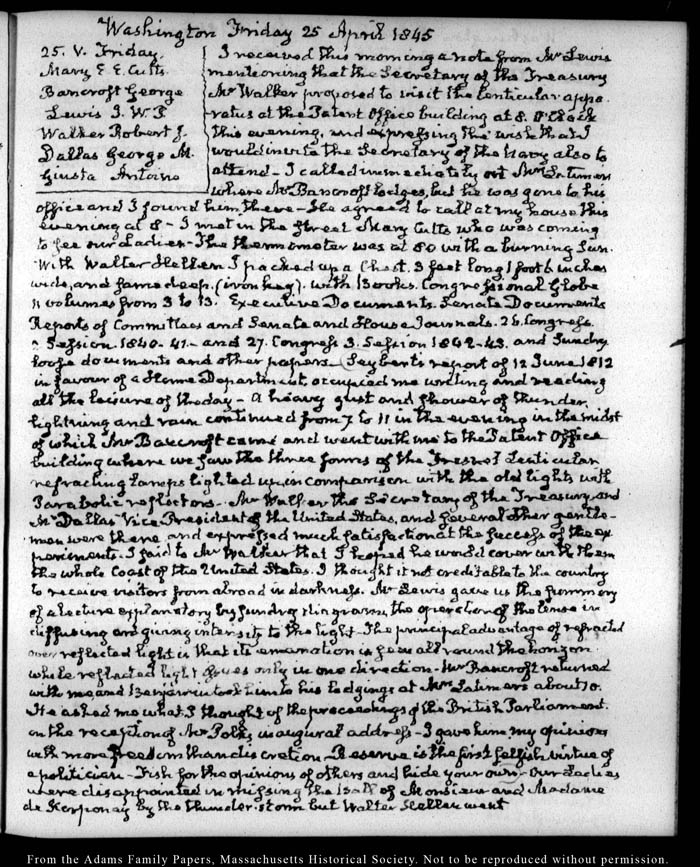 Washington Friday 25 April 1845
25. V. Friday.
Mary E. E. Cutts.
Bancroft George
Lewis I. W. P.
Walker Robert J.
Dallas George M.
Giusta Antoine
I received this morning a note from Mr Lewis
mentioning that the Secretary of the Treasury
Mr Walker proposed to visit the lenticular appa-
ratus at the Patent Office building at 8. O'Clock
this evening, and expressing the wish that I
would invite the Secretary of the Navy also to
attend - I called immediately at Mrs Latimers
where Mr Bancroft lodges, but he was gone to his
office and I found him there - He agreed to call at my house this
evening at 8 - I met in the street Mary Cutts who was coming
to see our Ladies - The thermometer was at 80 with a burning Sun.
With Walter Hellen I packed up a Chest. 3 feet long 1 foot 6 inches
wide, and same deep. (iron key). with Books. Congressional Globe
11 volumes from 3 to 13. Executive Documents. Senate Documents
Reports of Committees and Senate and House Journals. 26. Congress.
2 Session. 1840-41.- and 27. Congress 3. Session 1842-43. and Sundry
loose documents and other papers - Seybert's report of 12 June 1812
in favour of a Home Department, occupied me writing and reading
all the leisure of the day - A heavy gust and shower of thunder,
lightning and rain continued from 7 to 11 in the evening in the midst
of which Mr Bancroft came and went with me to the Patent Office
building where we saw the three forms of the Fresnel Lenticular
refracting Lamps lighted up, in comparison with the old lights with
Parabolic reflectors - Mr Walker the Secretary of the Treasury, and
Mr Dallas Vice-President of the United States, and several other gentle-
men were there and expressed much satisfaction at the success of the ex-
periments. I said to Mr Walker that I hoped he would cover with them
the whole Coast of the United States. I thought it not creditable to the country
to receive visitors from abroad in darkness. Mr Lewis gave us the summary
of a Lecture explanatory by sundry diagrams, the operation of the lense in
diffusing and giving intensity to the light - The principal advantage of refracted
over reflected light is that its emanation is seen all round the horizon
while reflected light gives only in one direction - Mr Bancroft returned
with me and Benjamin took him to his lodgings at Mrs Latimers about 10.
He asked me what I thought of the proceedings of the British Parliament.
on the reception of Mr Polk's inaugural address - I gave him my opinions
with more freedom than discretion - Reserve is the first selfish virtue of
a politician - Fish for the opinions of others and hide your own - Our Ladies
were disappointed in missing the Ball of Monsieur and Madame
de Kerponay by the thunder-storm but Walter Hellen went
From the Adams Family Papers, Massachusetts Historical Society. Not to be reproduced without permission.